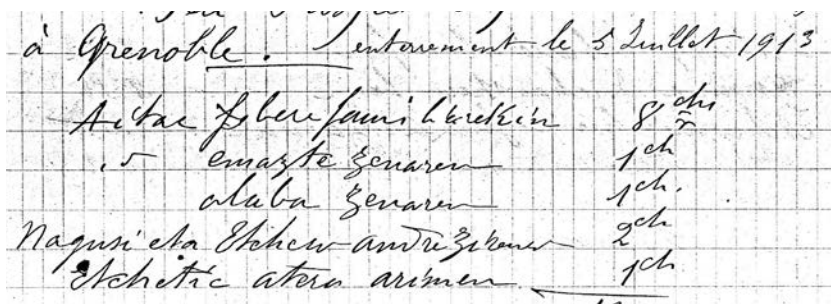 à Grenoble. enterrement le 5 Juillet 1913
Aitac bere familiarekin 8 chi
emazte zenaren 1 ch
alaba zenaren 1 ch.
Nagusi eta Etcheco andre zirenen 2 ch
Etchetic atera arimen 1 ch